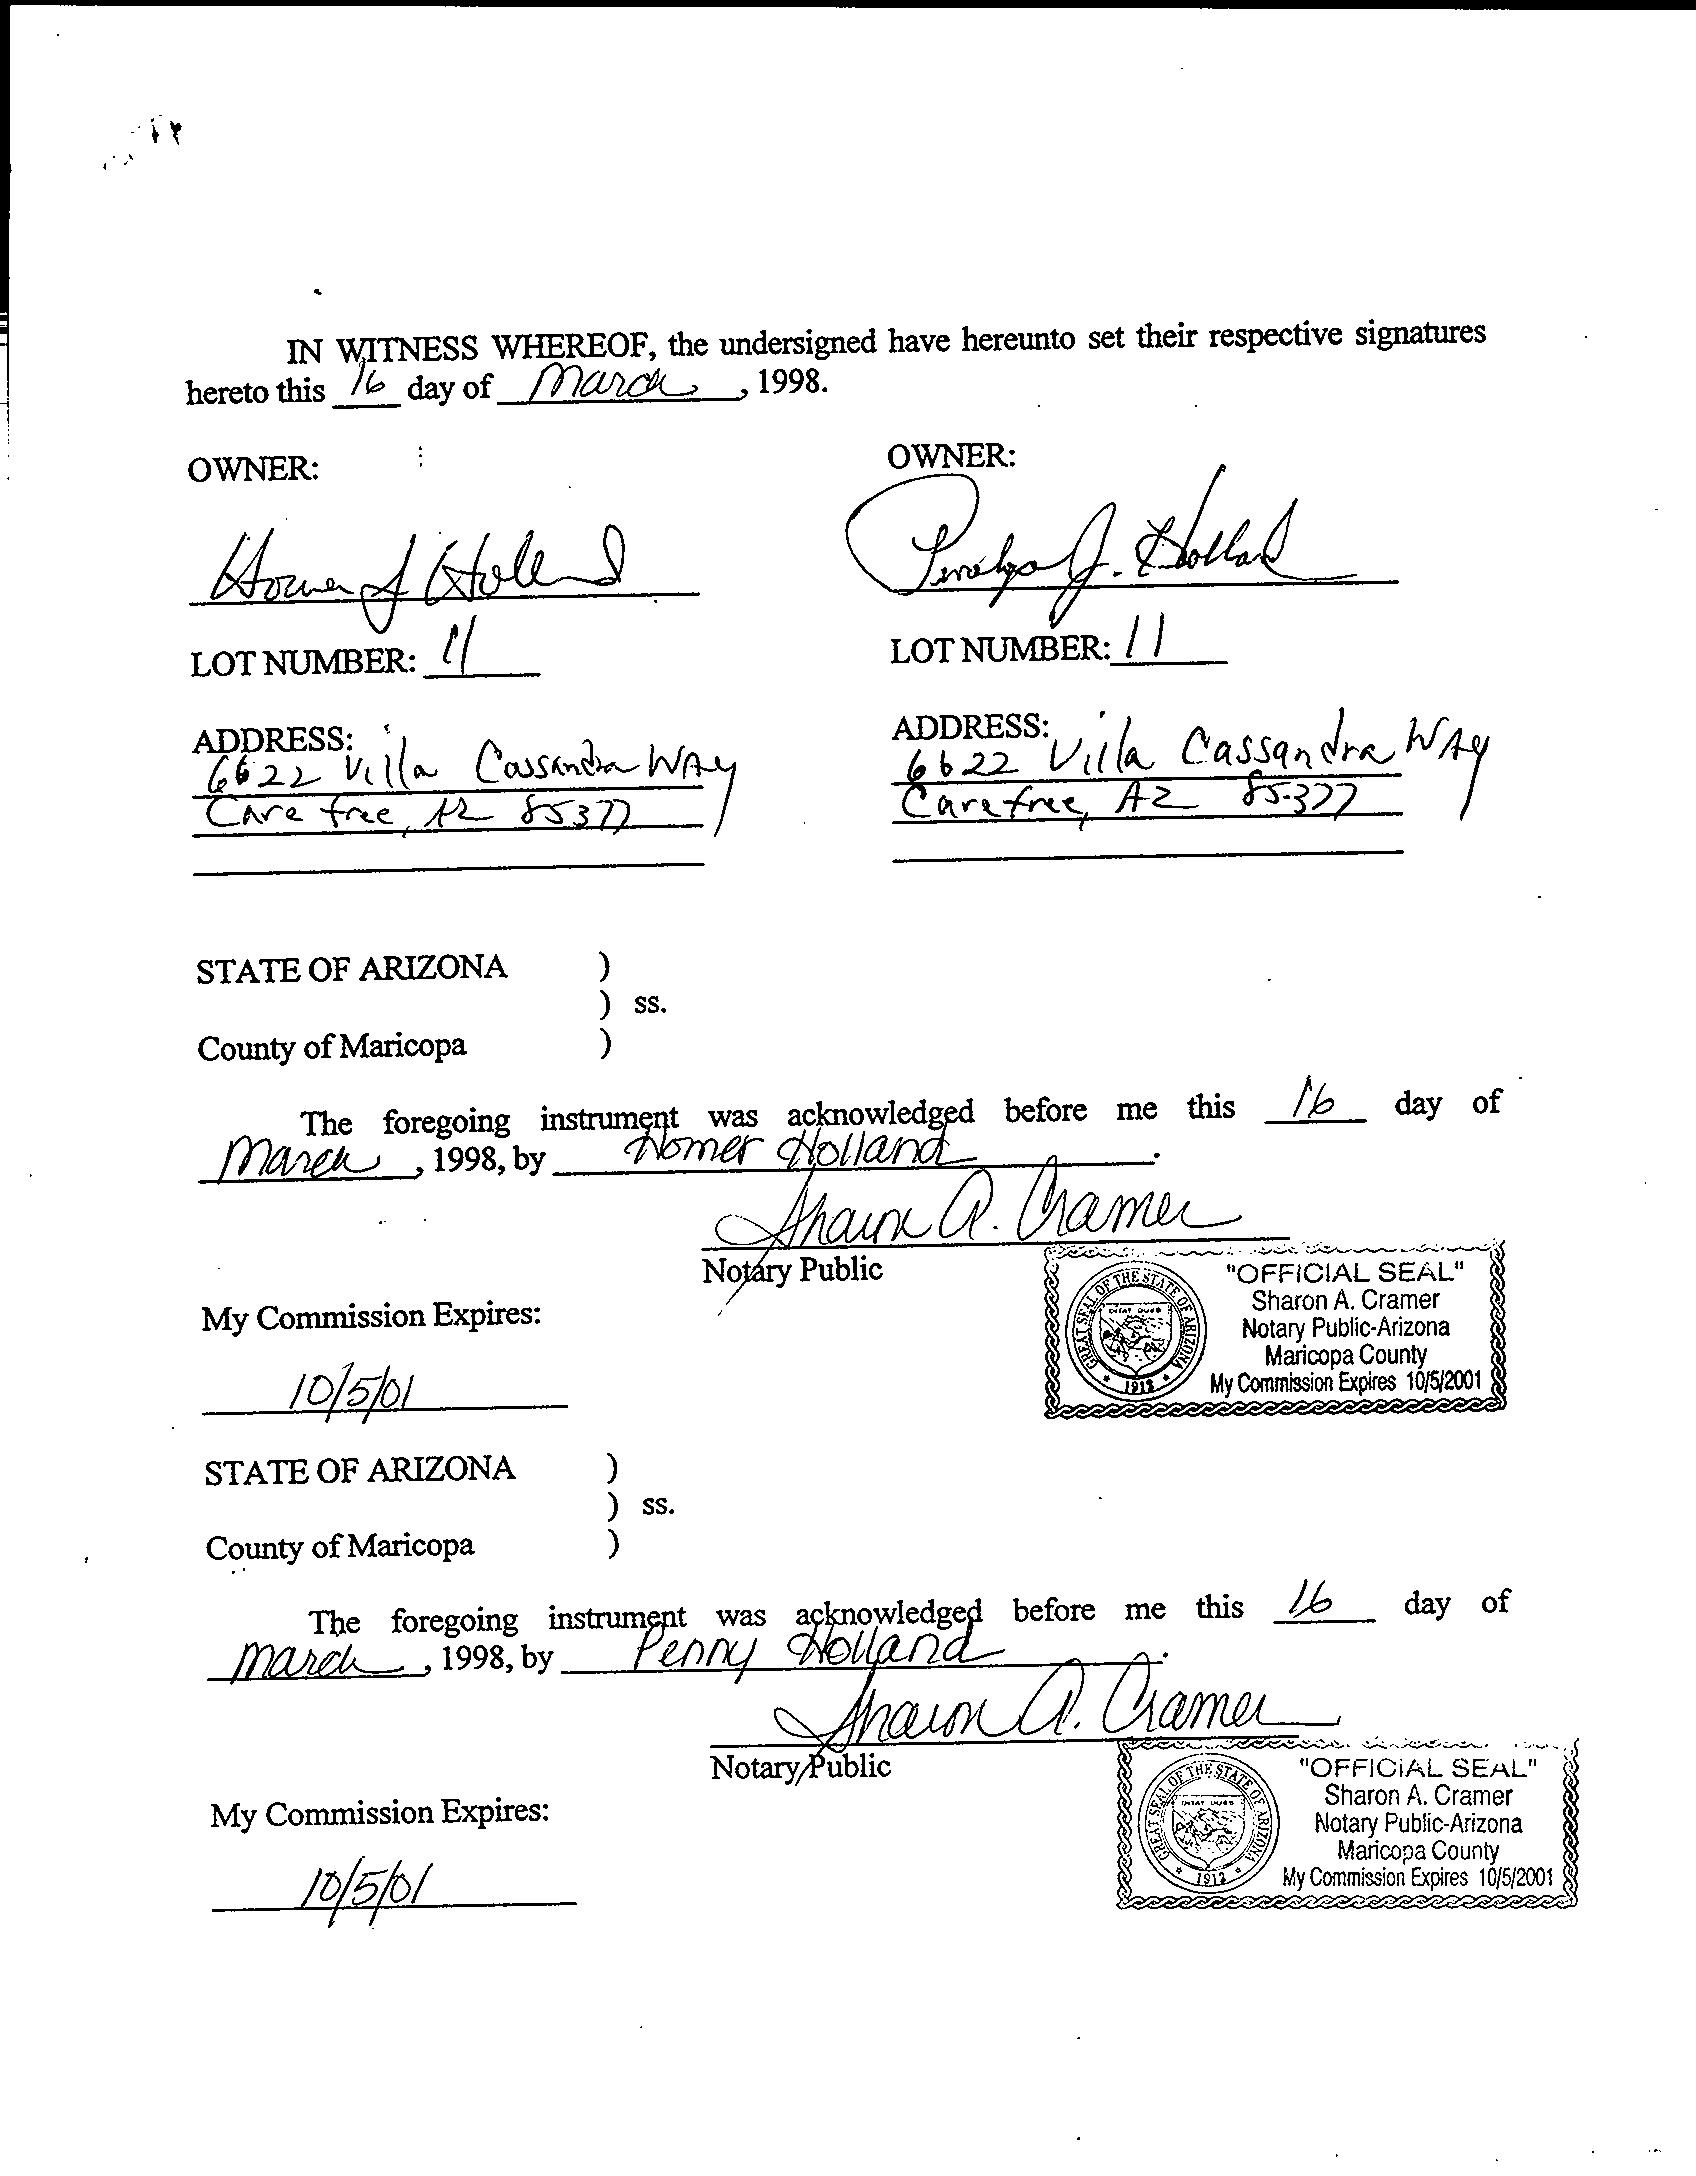 IN WITNESS WHEREOF, the undersigned have hereunto set their respective signatures
hereto this 16 day of March, 1998.
OWNER: OWNER:
Homer J Holland Penelope J. Holland
LOT NUMBER: 11 LOT NUMBER: 11
ADDRESS: ADDRESS:
6622 Villa Cassandra WAy 6622 Villa Cassandra WAy
Carefree, AZ 85377 Carefree, AZ 85377
STATE OF ARIZONA )
) ss.
County of Maricopa )
The foregoing instrument was acknowledged before me this 16 day of
March, 1998, by Homer Holland.
Sharon A. Cramer
Notary Public
"OFFICIAL SEAL"
Sharon A. Cramer
Notary Public-Arizona
Maricopa County
My Commission Expires 10/5/2001
GREAT SEAL OF THE STATE OF ARIZONA
DITAT DEUS
1912
My Commission Expires:
10/5/01
STATE OF ARIZONA )
) ss.
County of Maricopa )
The foregoing instrument was acknowledged before me this 16 day of
March, 1998, by Penny Holland.
Sharon A. Cramer
Notary Public
"OFFICIAL SEAL"
Sharon A. Cramer
Notary Public-Arizona
Maricopa County
My Commission Expires 10/5/2001
GREAT SEAL OF THE STATE OF ARIZONA
DITAT DEUS
1912
My Commission Expires:
10/5/01